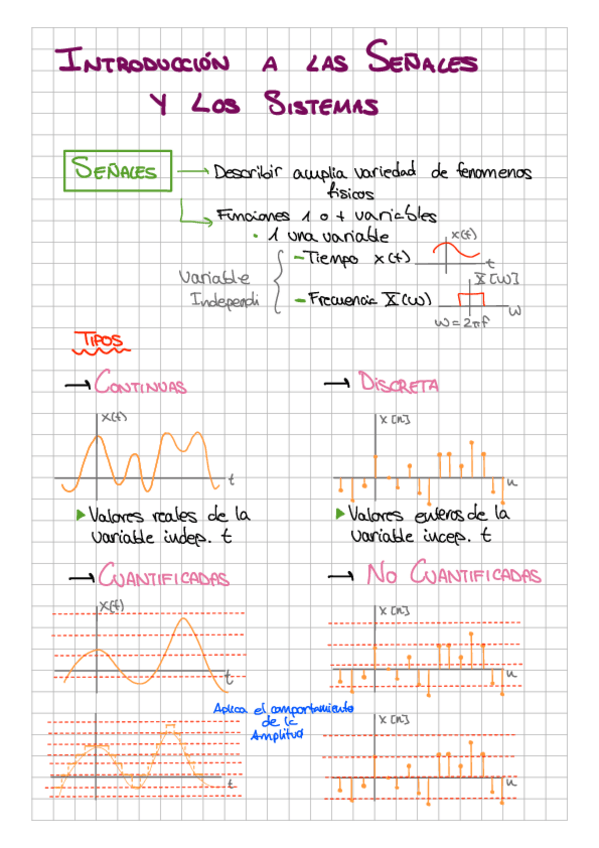 INTRODUCCIÓN A LAS SEÑALES
Y LOS SISTEMAS
SEÑALES
Describir amplia variedad de fenomenos
físicos
Funciones 1 o + variables
• 1 una variable
Variable
Independi
- Tiempo x(t)
x(t)
t
- Frecuencia X(w)
X[w]
w
w = 2πf
TIPOS
→ CONTINUAS
x(t)
t
▶ Valores reales de la
variable indep. t
→ DISCRETA
x[n]
n
▶ Valores enteros de la
variable incep. t
→ CUANTIFICADAS
x(t)
t
→ NO CUANTIFICADAS
x[n]
n
Aplica el comportamiento
de la
Amplitud
t
x[n]
n